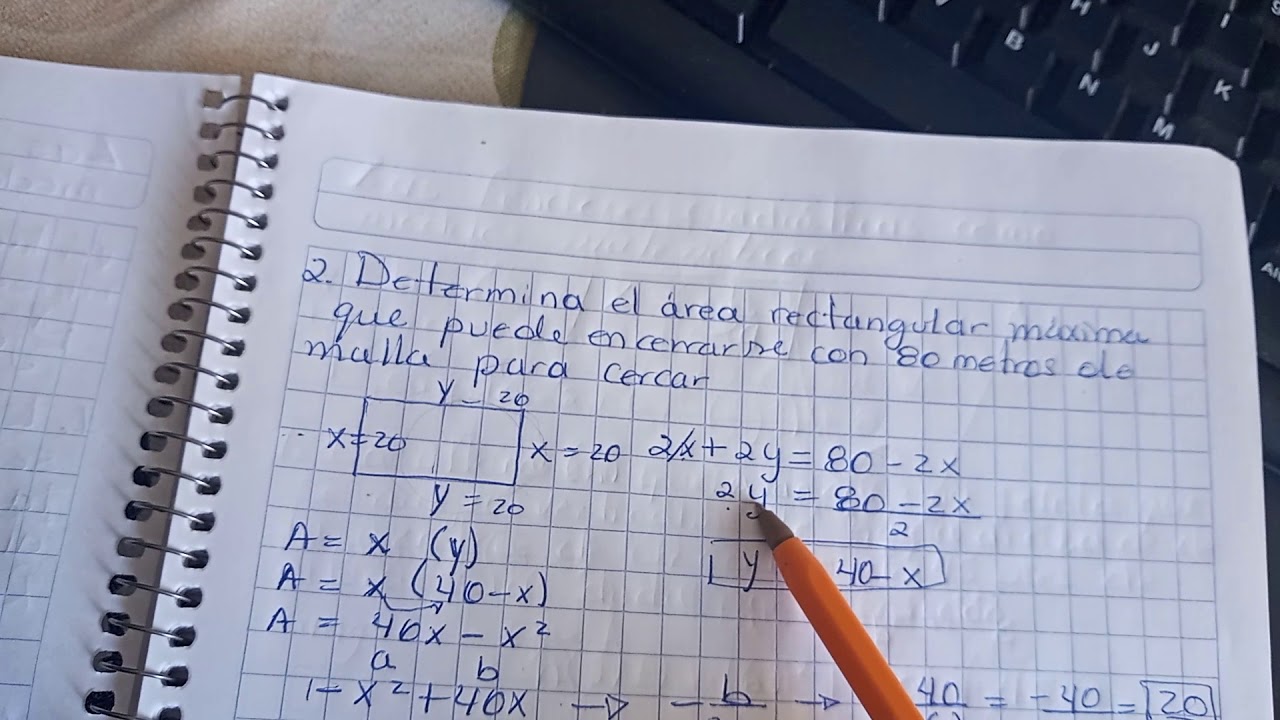 2. Determina el área rectangular máxima
que puede encerrarse con 80 metros de
malla para cercar
y = 20
x = 20
x = 20
2x + 2y = 80 - 2x
2y = 80 - 2x
2
y = 20
y 40 - x
A = x (y)
A = x (40 - x)
A = 40x - x²
a b
1 - x² + 40x → - b → 40 = -40 = 20
B
N
M
J
K
H